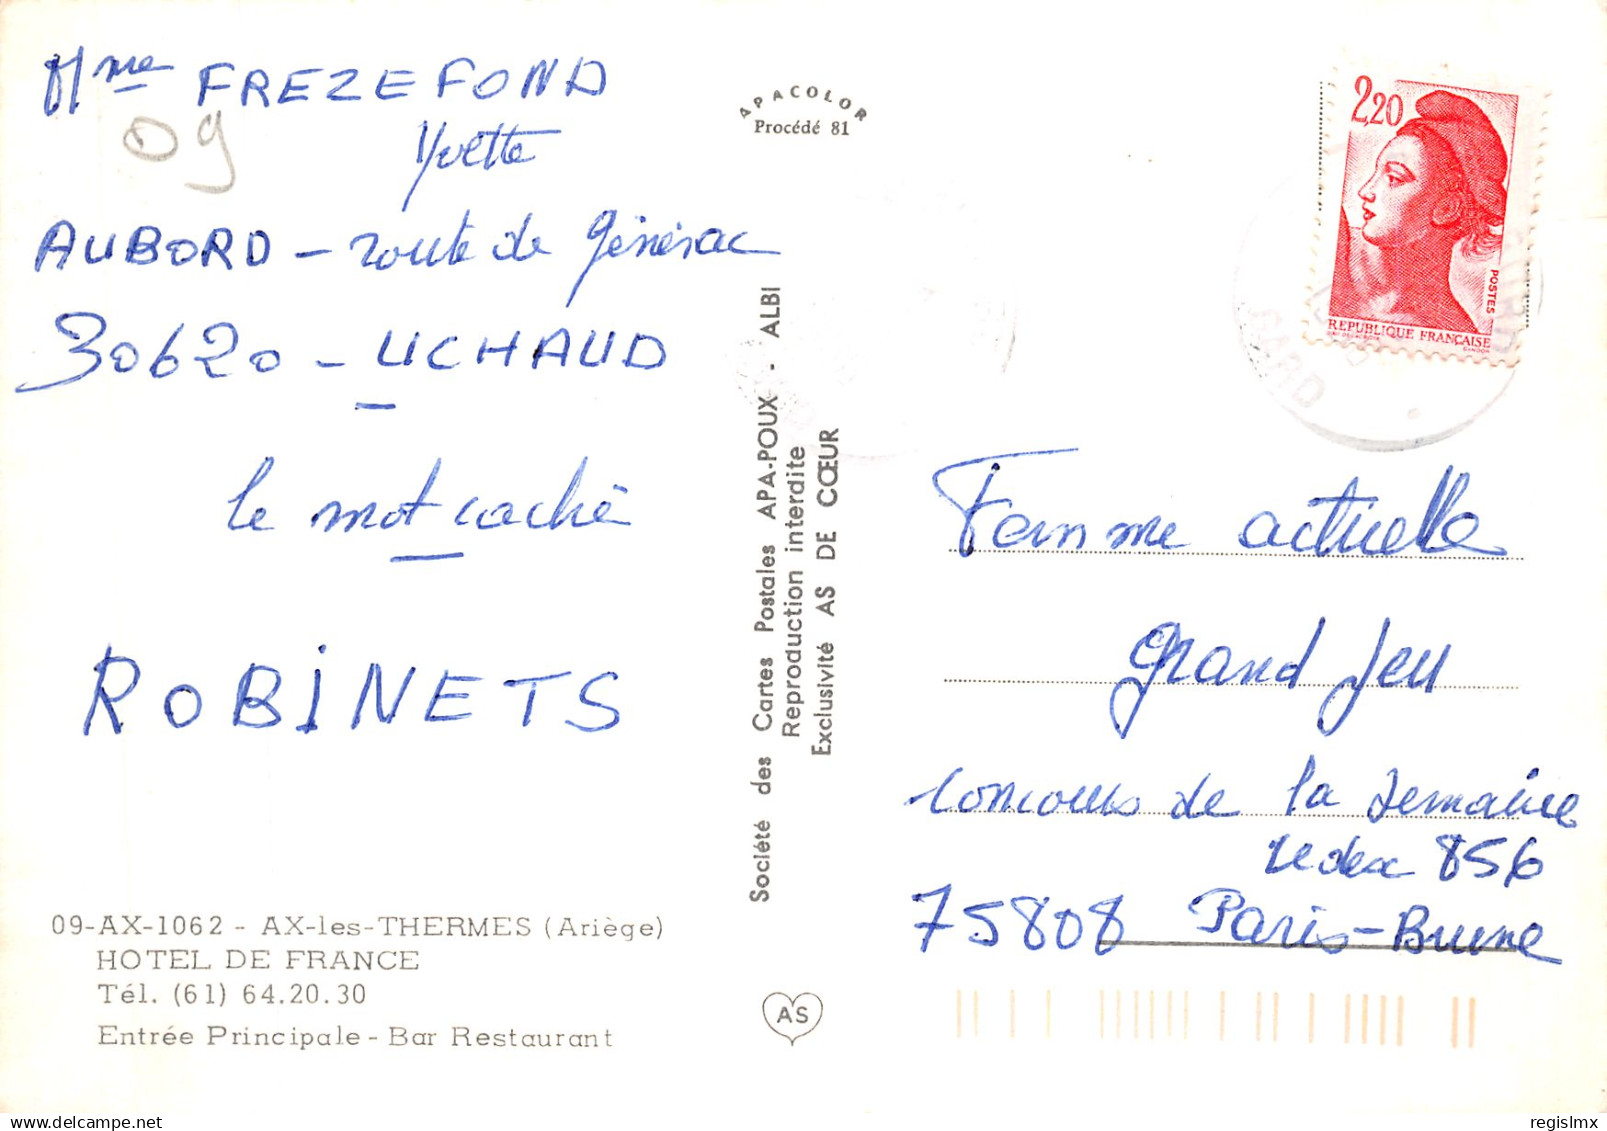 Mme FREZEFOND
Yvette
09
AUBORD - route de Générac
30620 - UCHAUD
le mot caché
ROBINETS
09-AX-1062 - AX-les-THERMES (Ariège)
HOTEL DE FRANCE
Tél. (61) 64.20.30
Entrée Principale - Bar Restaurant
APACOLOR
Procédé 81
Société des Cartes Postales APA-POUX - ALBI
Reproduction interdite
Exclusivité AS DE CŒUR
AS
2,20
POSTES
REPUBLIQUE FRANÇAISE
GANDON
GARD
Femme actuelle
grand jeu
concours de la semaine
cedex 856
75808 Paris-Brune
delcampe.net
regislmx